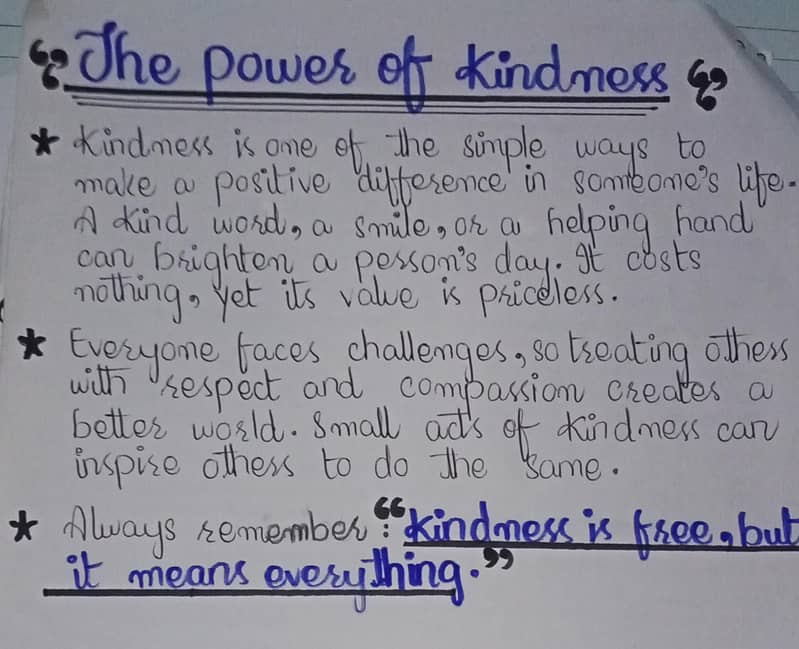 “The power of kindness”
★ Kindness is one of the simple ways to
make a positive difference in someone's life.
A kind word, a smile, or a helping hand
can brighten a person's day. It costs
nothing, yet its value is priceless.
★ Everyone faces challenges, so treating others
with respect and compassion creates a
better world. Small acts of kindness can
inspire others to do the same.
★ Always remember: “kindness is free, but
it means everything.”